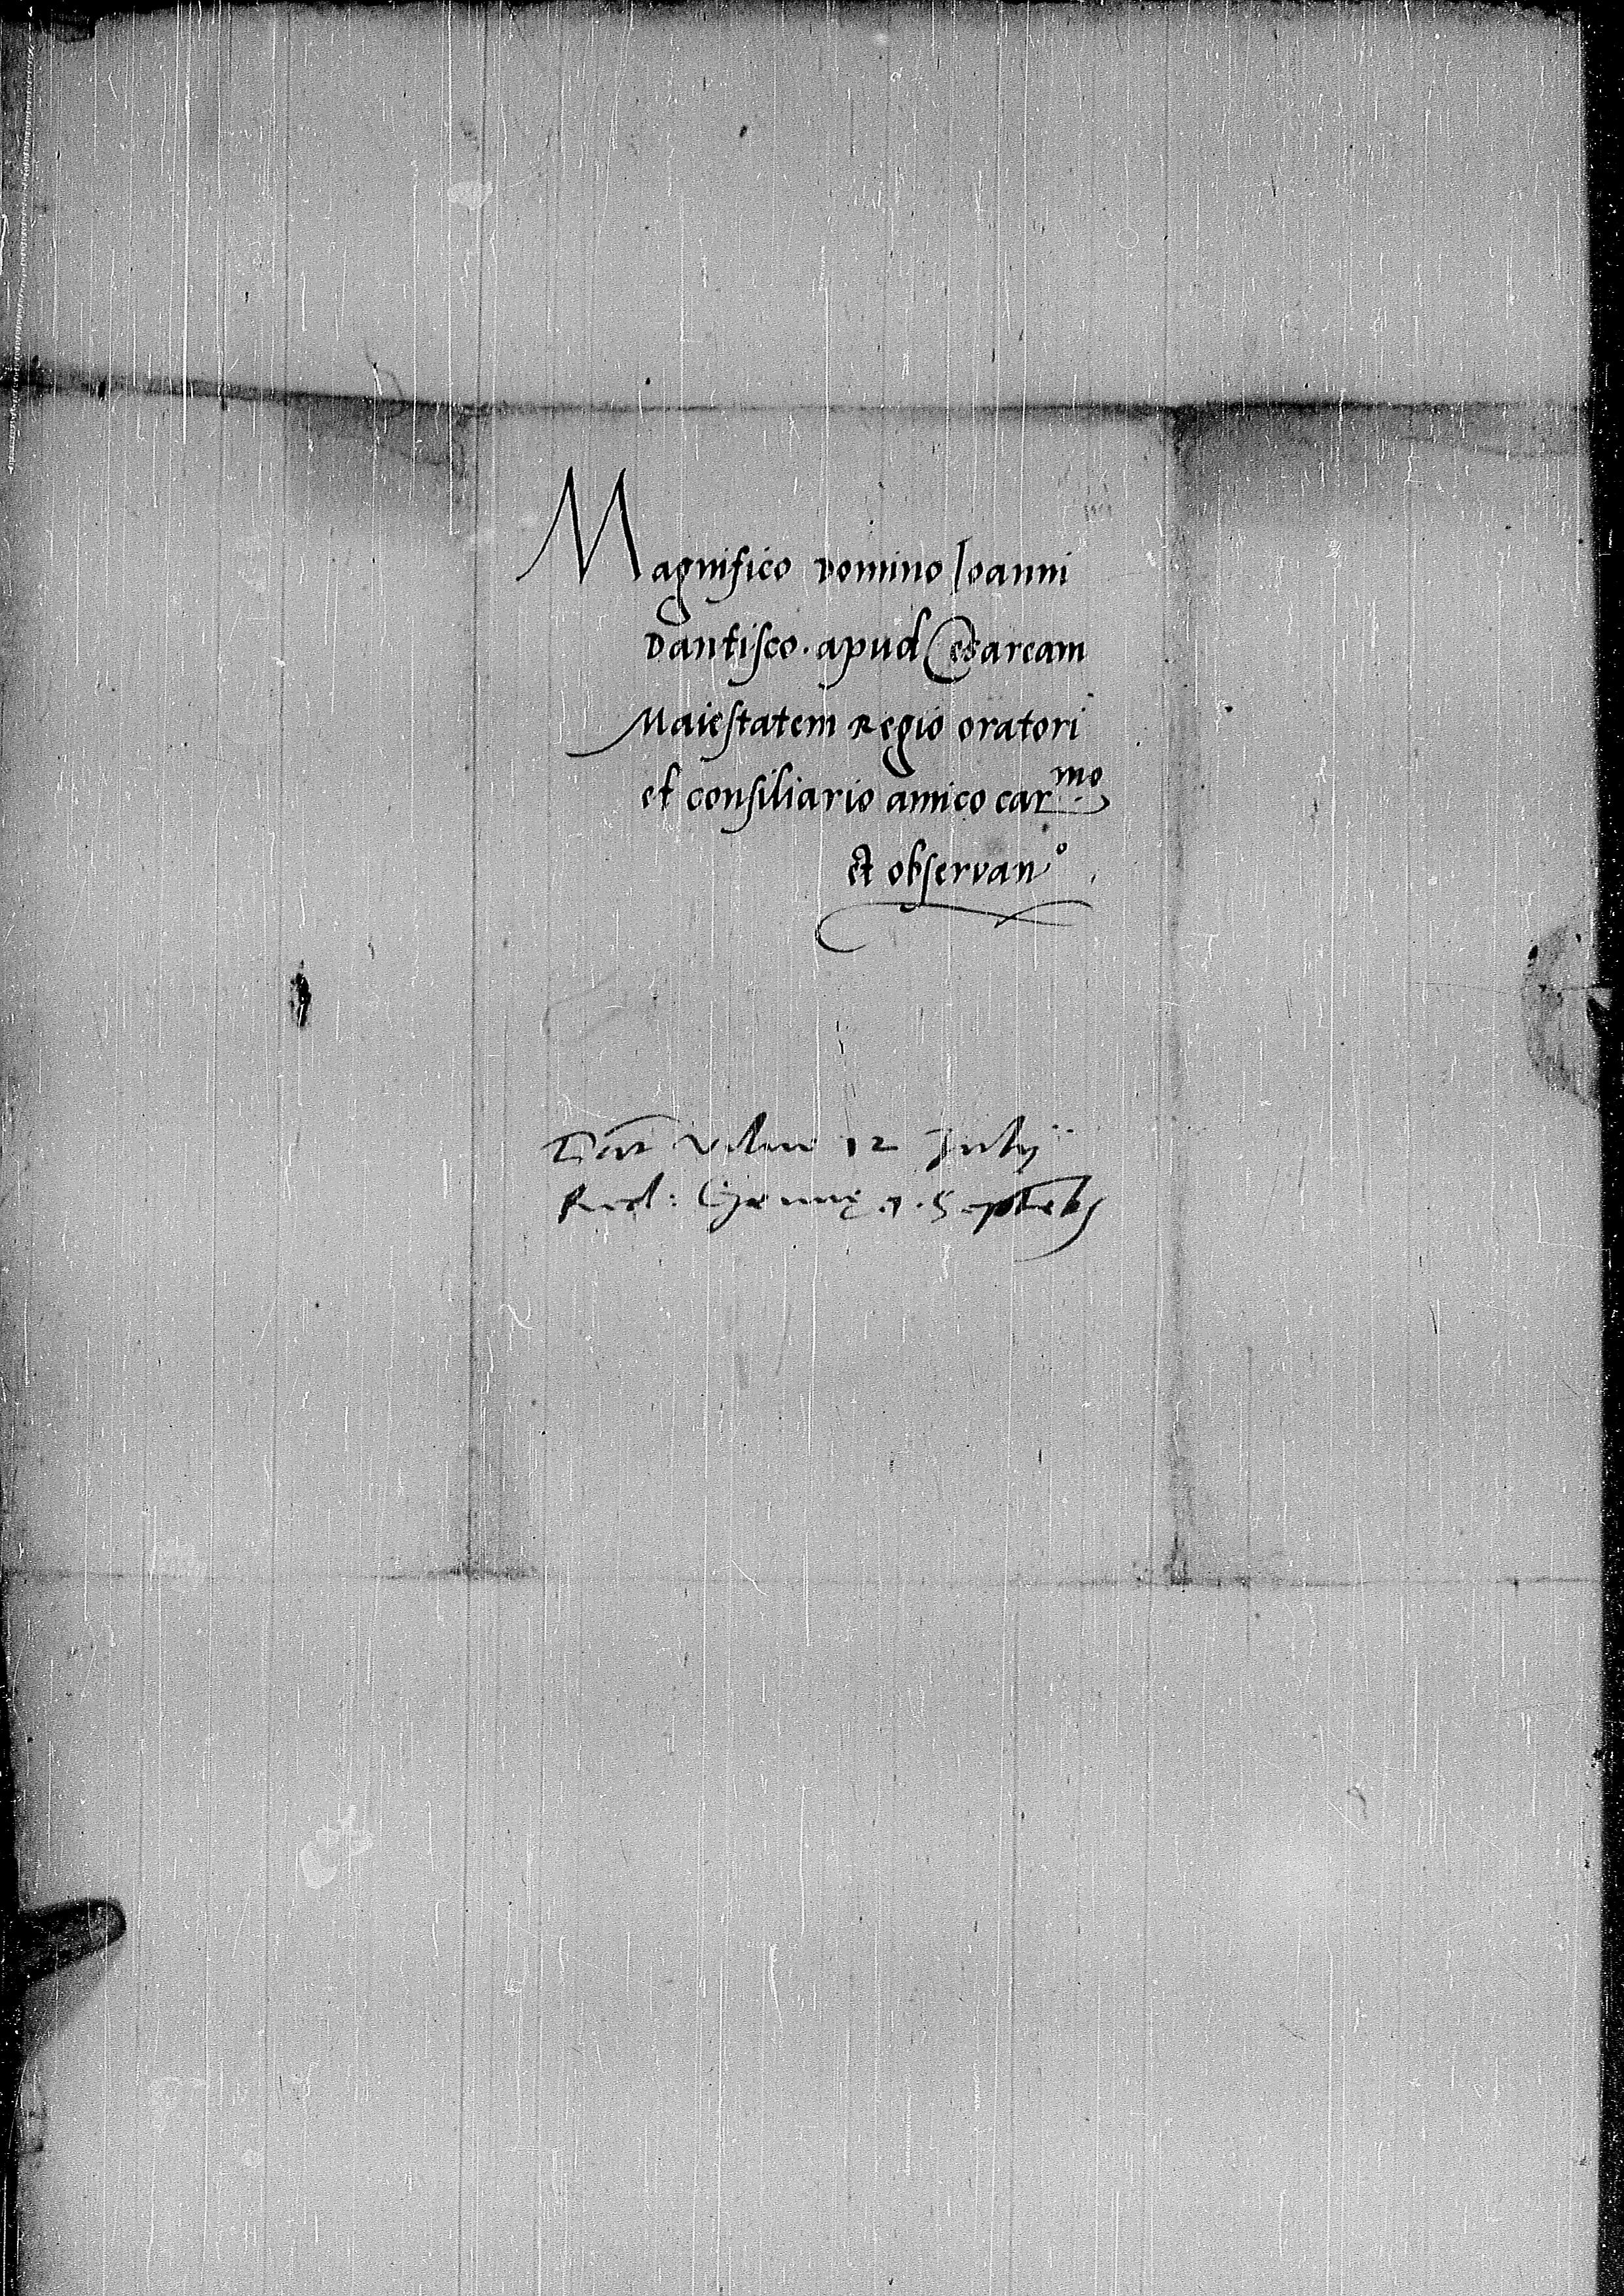 Magnifico domino Ioanni
Dantisco. apud Cesaream
Maiestatem Regio oratori
et consiliario amico car<sup>mo</sup>
et observan<sup>o</sup>
Dat Vilne 12 Julij
Red: Genue .1. Septebr